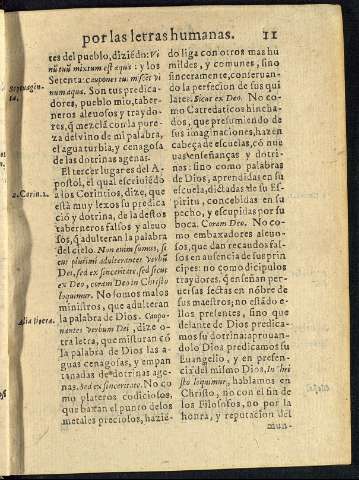 por las letras humanas. 11
tes del pueblo, diziēdo: Vi
nū tuū mixtum est aqua: y los
Setenta: caupones tui miscēt vi
num aqua. Son tus predica-
dores, pueblo mio, taber-
neros aleuosos y traydo-
res, q̄ mezclā con la pure
za del vino de mi palabra,
el agua turbia, y cenagosa
de las dotrinas agenas.
El tercer lugar es del A-
postol, el qual escriuiēdo
à los Corintios, dize, que
està muy lexos su predica
ciō y dotrina, de la destos
taberneros falsos y aleuo
sos, q̄ adulteran la palabra
del cielo. Non enim sumus, si
cut plurimi adulterantes Verbū
Dei, sed ex sinceritate, sed sicut
ex Deo, coram Deo in Christo
loquimur. No somos malos
ministros, que adulteran
la palabra de Dios. Caupo-
nantes Verbum Dei, dize o-
tra letra, que misturan cō
la palabra de Dios las a-
guas cenagosas, y empan
tanadas de dotrinas agе-
nas. Sed ex sinceritate. No co
mo plateros codiciosos,
que baxan el punto de los
metales preciosos, haziē-
Septuagin-
ta.
2. Corin. 2.
Alia litera.
do liga con otros mas hu
mildes, y comunes, sino
sinceramente, conseruan-
do la perfecion de sus qui
lates. Sicut ex Deo. No co-
mo Catredaticos hincha-
dos, que presumiendo de
sus imaginaciones, hazen
cabeça de escuelas, cō nue
uas enseñanças y dotri-
nas: sino como palabras
de Dios, aprendidas en su
escuela, dictadas de su Es-
piritu, concebidas en su
pecho, y escupidas por su
boca. Coram Deo. No co-
mo embaxadores aleuo-
sos, que dan recaudos fal-
sos en ausencia de sus prin
cipes: no como dicipulos
traydores, q̄ enseñan per-
uersas sectas en nōbre de
sus maestros; no estādo e-
llos presentes, sino que
delante de Dios predica-
mos su dotrina: aprouan-
dolo Dios predicamos su
Euangelio, y en presen-
cia del mismo Dios, In Chri
sto loquimur, hablamos en
Christo, no con el fin de
los Filosofos, no por la
honra, y reputacion del
mun-